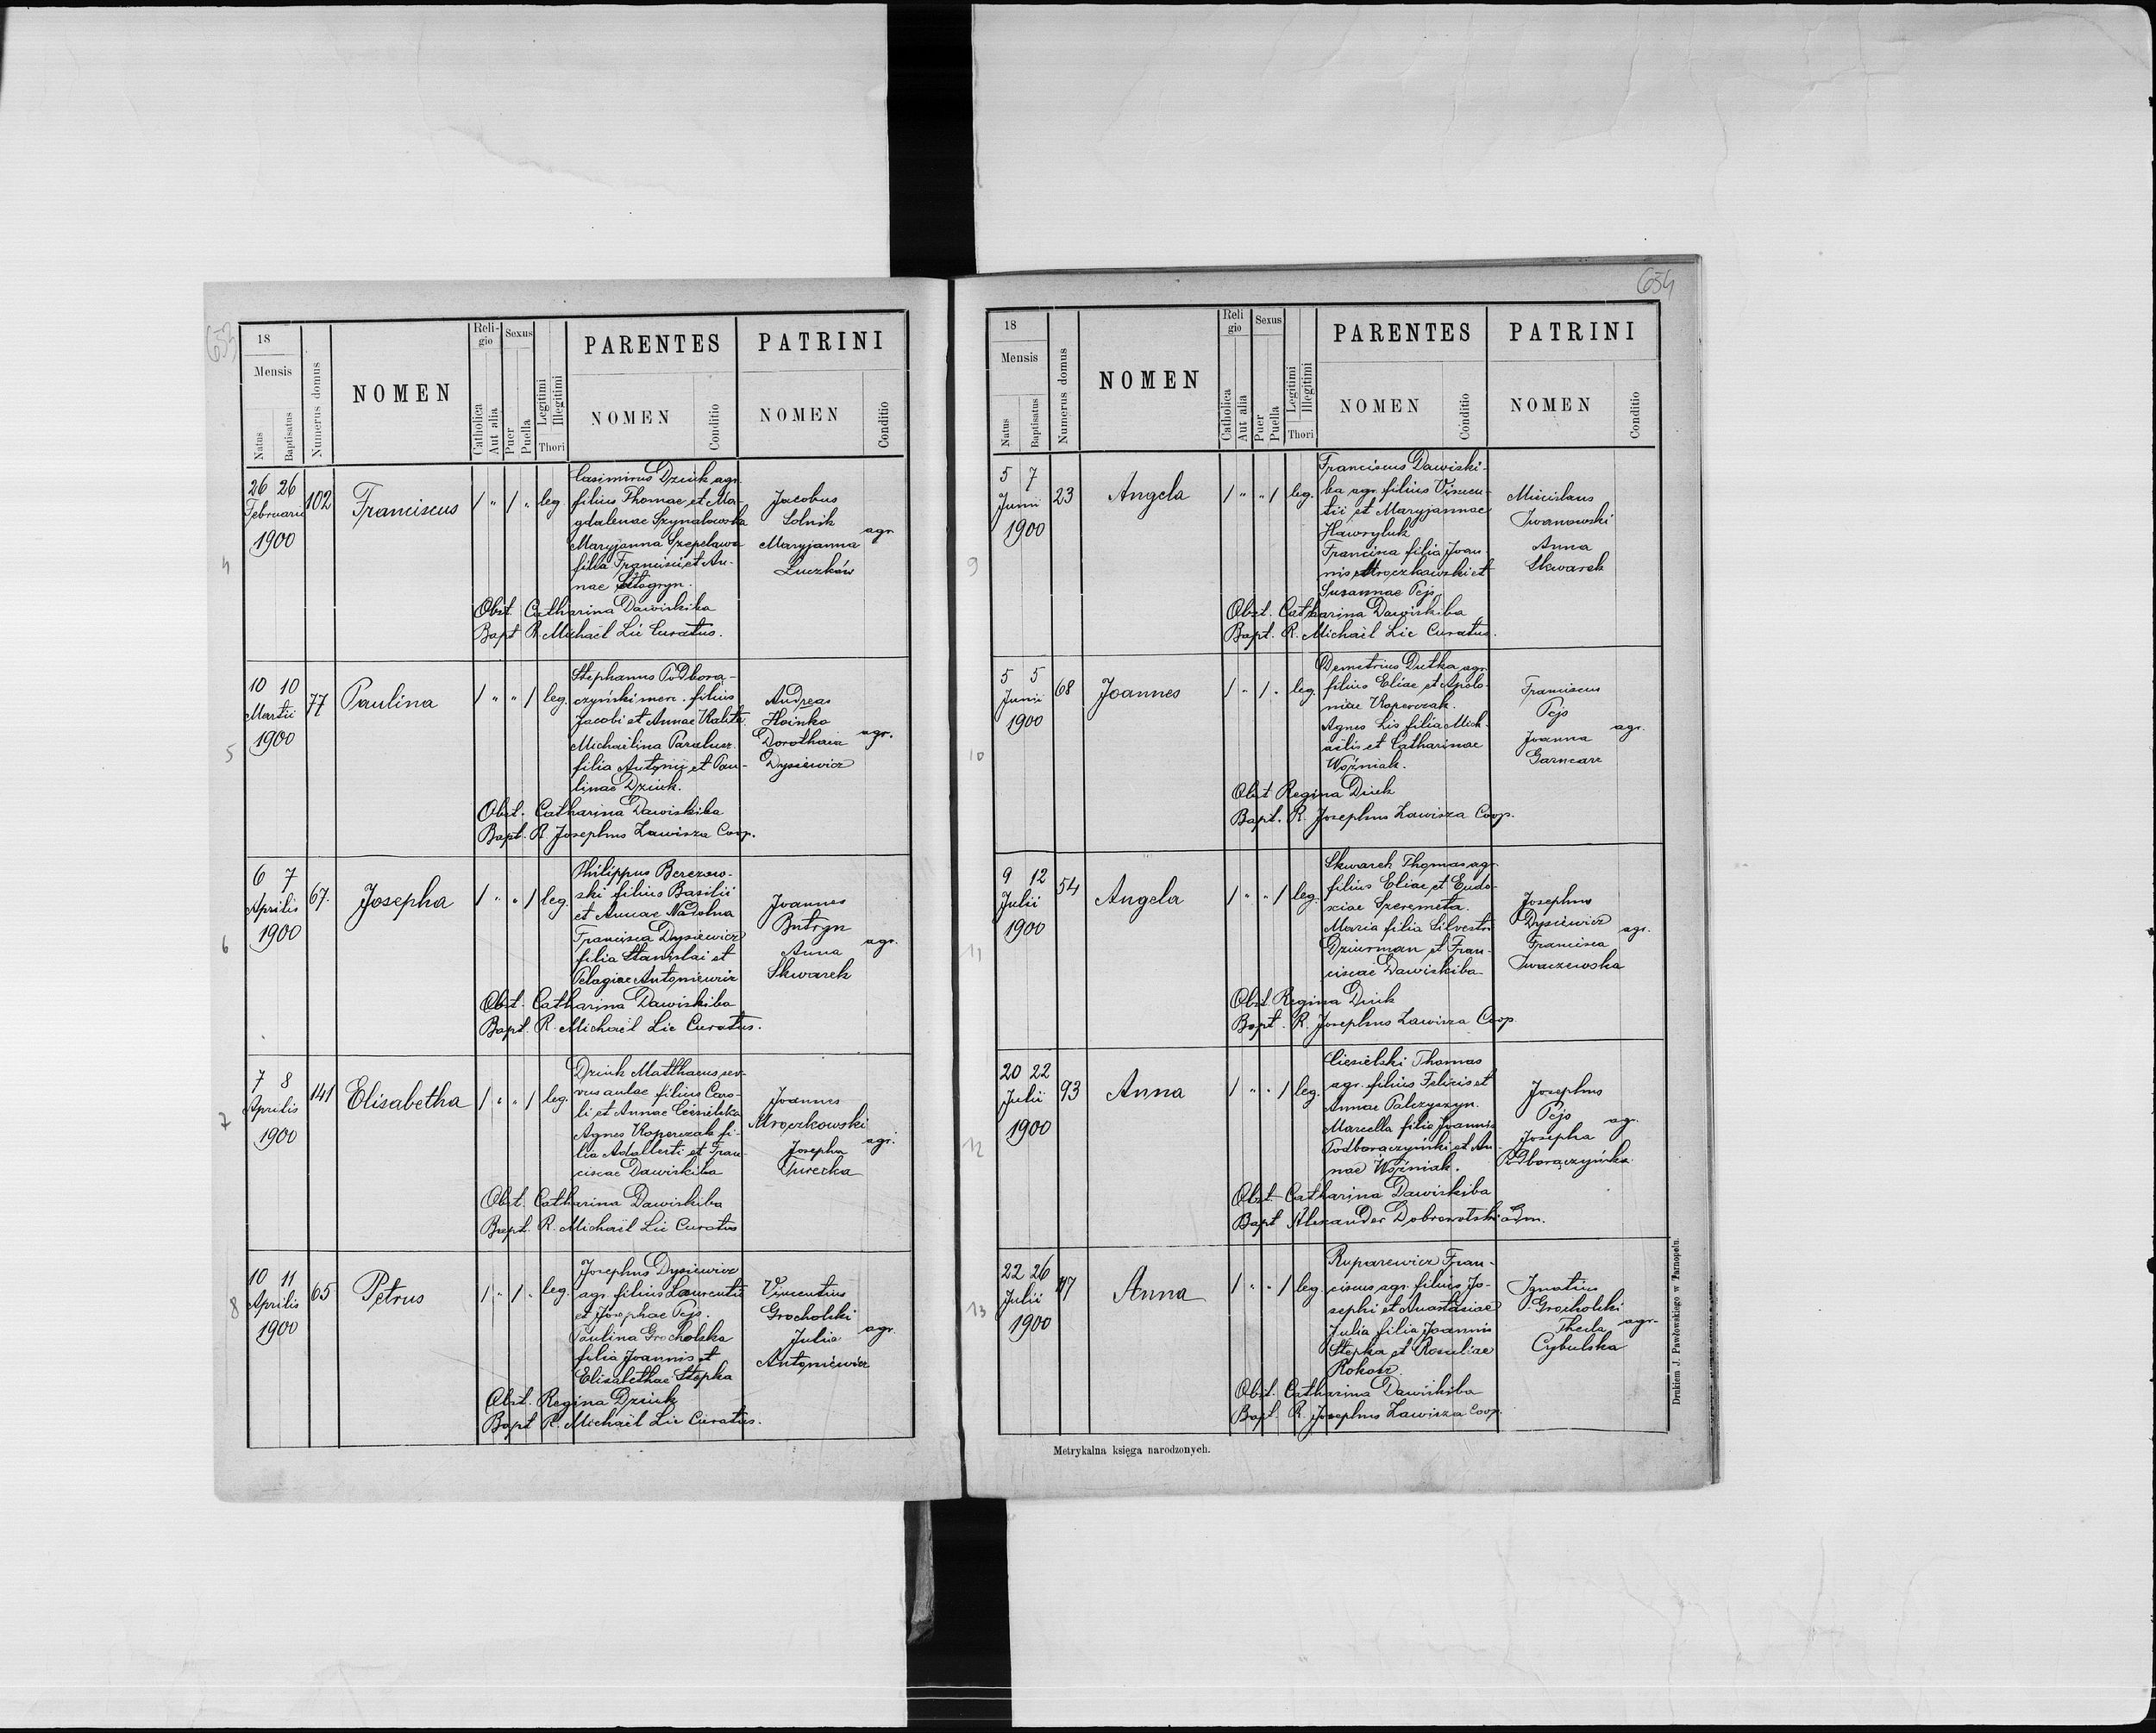 653
18
Mensis
Natus
Baptisatus
Numerus domus
NOMEN
Reli-
gio
Catholica
Aut alia
Sexus
Puer
Puella
Legitimi
Illegitimi
Thori
PARENTES
NOMEN
Conditio
PATRINI
NOMEN
Conditio
4
26 26
Februarii
1900
102
Franciscus
/ " / " leg
Casimirus Dziuk agr.
filius Thomae et Ma-
gdalenae Szymalowska
Maryjanna Szepelawa
filia Francisci et An-
nae
Jacobus
Solnik
Maryjanna
Łuczków
agr
Obst. Catharina Dawiskiba
Bapt R. Michaël Lic Curatus.
5
10 10
Martii
1900
77
Paulina
/ " " / leg.
Stephanus Podbora-
czyński mer. filius
Jacobi et Annae Kalita
Michaëlina Paralusz
filia Antonii et Pau-
linae Dziuk.
Andreas
Hoinko
Dorothaea
Dysiewicz
agr.
Obst. Catharina Dawiskiba
Bapt. R. Josephus Zawisza Coop.
6
6 7
Aprilis
1900
67.
Josepha
/ " " / leg.
Philippus Berezow-
ski filius Basilii
et Annae Nadolna
Francisca Dysiewicz
filia Stanislai et
Pelagiae Antoniewicz
Joannes
Butryn
Anna
Skwarek
agr.
Obst. Catharina Dawiskiba
Bapt. R. Michaël Lic Curatus.
7
7 8
Aprilis
1900
141
Elisabetha
/ " " / leg.
Dziuk Matthaeus ser-
vus aulae filius Caro-
li et Annae Ciesielska
Agnes Koperczak fi-
lia Adalberti et Fran-
ciscae Dawiskiba
Joannes
Mroczkowski
Josepha
Turecka
agr.
Obst. Catharina Dawiskiba
Bapt. R. Michaël Lic Curatus
8
10 11
Aprilis
1900
65
Petrus
/ " / " leg.
Josephus Dysiewicz
agr. filius Laurentii
et Josephae Pejs.
Paulina Grocholska
filia Joannis et
Elisabethae Stepka
Vincentius
Grocholski
Julia
Antoniewicz
agr.
Obst. Regina Dziuk
Bapt R. Michaël Lic Curatus.
654
18
Mensis
Natus
Baptisatus
Numerus domus
NOMEN
Reli
gio
Catholica
Aut alia
Sexus
Puer
Puella
Legitimi
Illegitimi
Thori
PARENTES
NOMEN
Conditio
PATRINI
NOMEN
Conditio
9
5 7
Junii
1900
23
Angela
/ " " / leg.
Franciscus Dawiski-
ba agr. filius Vincen-
tii et Maryjannae
Hawryluk
Francisca filia Joan-
nis Mroczkowski et
Susannae Pejs
Miecislaus
Iwanowski
Anna
Skwarek
Obst. Catharina Dawiskiba
Bapt. R. Michaël Lic Curatus.
10
5 5
Junii
1900
68
Joannes
/ " / " leg.
Demetrius Dutka agr.
filius Eliae et Apolo-
niae Koperczak.
Agnes Lis filia Mich-
aëlis et Catharinae
Woźniak.
Franciscus
Pejs
Joanna
Garncarz
agr.
Obst Regina Diuk
Bapt. R. Josephus Zawisza Coop.
11
9 12
Julii
1900
54
Angela
/ " " / leg.
Skwarek Thomas agr.
filius Eliae et Eudo-
xiae Szeremeta.
Maria filia Silvestri
Dziurman et Fran-
ciscae Dawiskiba
Josephus
Dysiewicz
Francisca
Iwaszewska
agr.
Obst Regina Diuk
Bapt. R. Josephus Zawisza Coop.
12
20 22
Julii
1900
93
Anna
/ " " / leg.
Ciesielski Thomas
agr. filius Felicis et
Annae Palczyszyn.
Marcella filia Joannis
Podboraczyński et An-
nae Woźniak.
Josephus
Pejs
Josepha
Podboraczyńska
agr.
Obst Catharina Dawiskiba
Bapt Alexander Dobrowolski adm.
13
22 26
Julii
1900
117
Anna
/ " " / leg.
Ruparewicz Fran-
ciscus agr. filius Jo-
sephi et Anastasiae
Julia filia Joannis
Stepka et Rosaliae
Rokosz
Ignatius
Grocholski
Thecla
Cybulska
agr.
Obst. Catharina Dawiskiba
Bapt. R. Josephus Zawisza Coop.
Metrykalna księga narodzonych.
Drukiem J. Pawłowskiego w Tarnopolu.